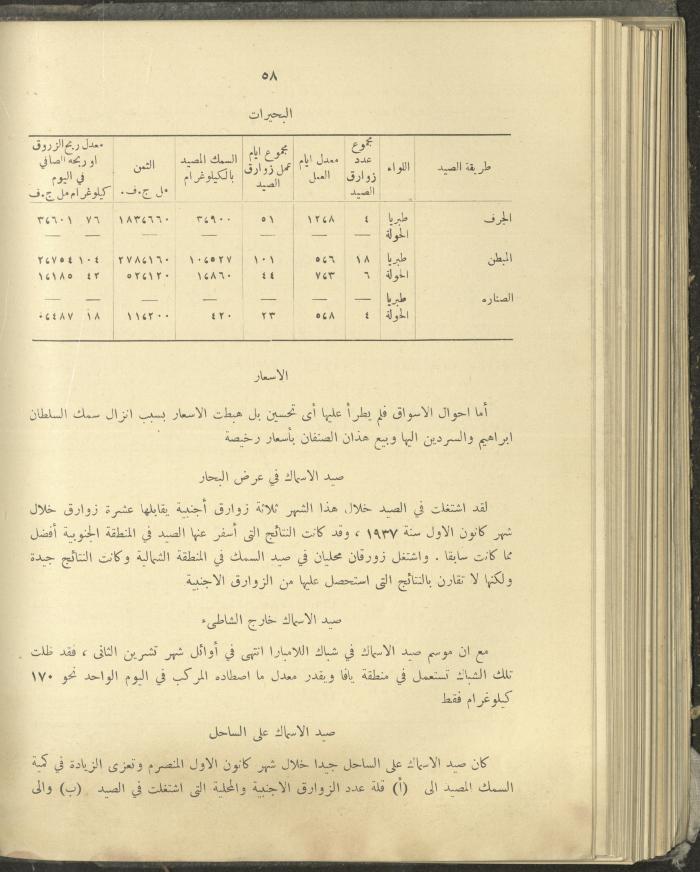 ٥٨
البحيرات
طريقة الصيد اللواء مجموع عدد زوارق الصيد معدل ايام العمل مجموع ايام عمل زوارق الصيد السمك المصيد بالكيلوغرام الثمن مل ج.ف. معدل ربح الزروق او ربحه الصافي في اليوم كيلوغرام مل ج.ف
الجرف طبريا ٤ ١٢،٨ ٥١ ٣،٩٠٠ ١٨٣،٦٦٠ ٧٦ ٣،٦٠١
الحولة — — — — — — —
المبطن طبريا ١٨ ٥،٦ ١٠١ ١٠،٥٢٧ ٢٧٨،١٦٠ ١٠٤ ٢،٧٥٤
الحولة ٦ ٧،٣ ٤٤ ١،٨٦٠ ٥٢،١٢٠ ٤٢ ١،١٨٥
الصناره طبريا — — — — — — —
الحولة ٤ ٥،٨ ٢٣ ٤٢٠ ١١،٢٠٠ ١٨ ٠،٤٨٧
الاسعار
أما احوال الاسواق فلم يطرأ عليها أى تحسين بل هبطت الاسعار بسبب انزال سمك السلطان
ابراهيم والسردين اليها وبيع هذان الصنفان بأسعار رخيصة
صيد الاسماك في عرض البحار
لقد اشتغلت في الصيد خلال هذا الشهر ثلاثة زوارق أجنبية يقابلها عشرة زوارق خلال
شهر كانون الاول سنة ١٩٣٧ ، وقد كانت النتائج التى أسفر عنها الصيد في المنطقة الجنوبية أفضل
مما كانت سابقا . واشتغل زورقان محليان في صيد السمك في المنطقة الشمالية وكانت النتائج جيدة
ولكنها لا تقارن بالنتائج التى استحصل عليها من الزوارق الاجنبية
صيد الاسماك خارج الشاطىء
مع ان موسم صيد الاسماك في شباك اللامبارا انتهى في أوائل شهر تشرين الثانى ، فقد ظلت
تلك الشباك تستعمل في منطقة يافا ويقدر معدل ما اصطاده المركب في اليوم الواحد نحو ١٧٠
كيلوغرام فقط
صيد الاسماك على الساحل
كان صيد الاسماك على الساحل جيدا خلال شهر كانون الاول المنصرم وتعزى الزيادة في كمية
السمك المصيد الى (أ) قلة عدد الزوارق الاجنبية والمحلية التى اشتغلت في الصيد (ب) والى